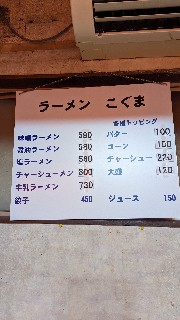 ラーメン こぐま
味噌ラーメン 580
醤油ラーメン 580
塩ラーメン 580
チャーシューメン 800
牛乳ラーメン 730
餃子 450
各種トッピング
バター 100
コーン 100
チャーシュー 220
大盛 120
ジュース 150